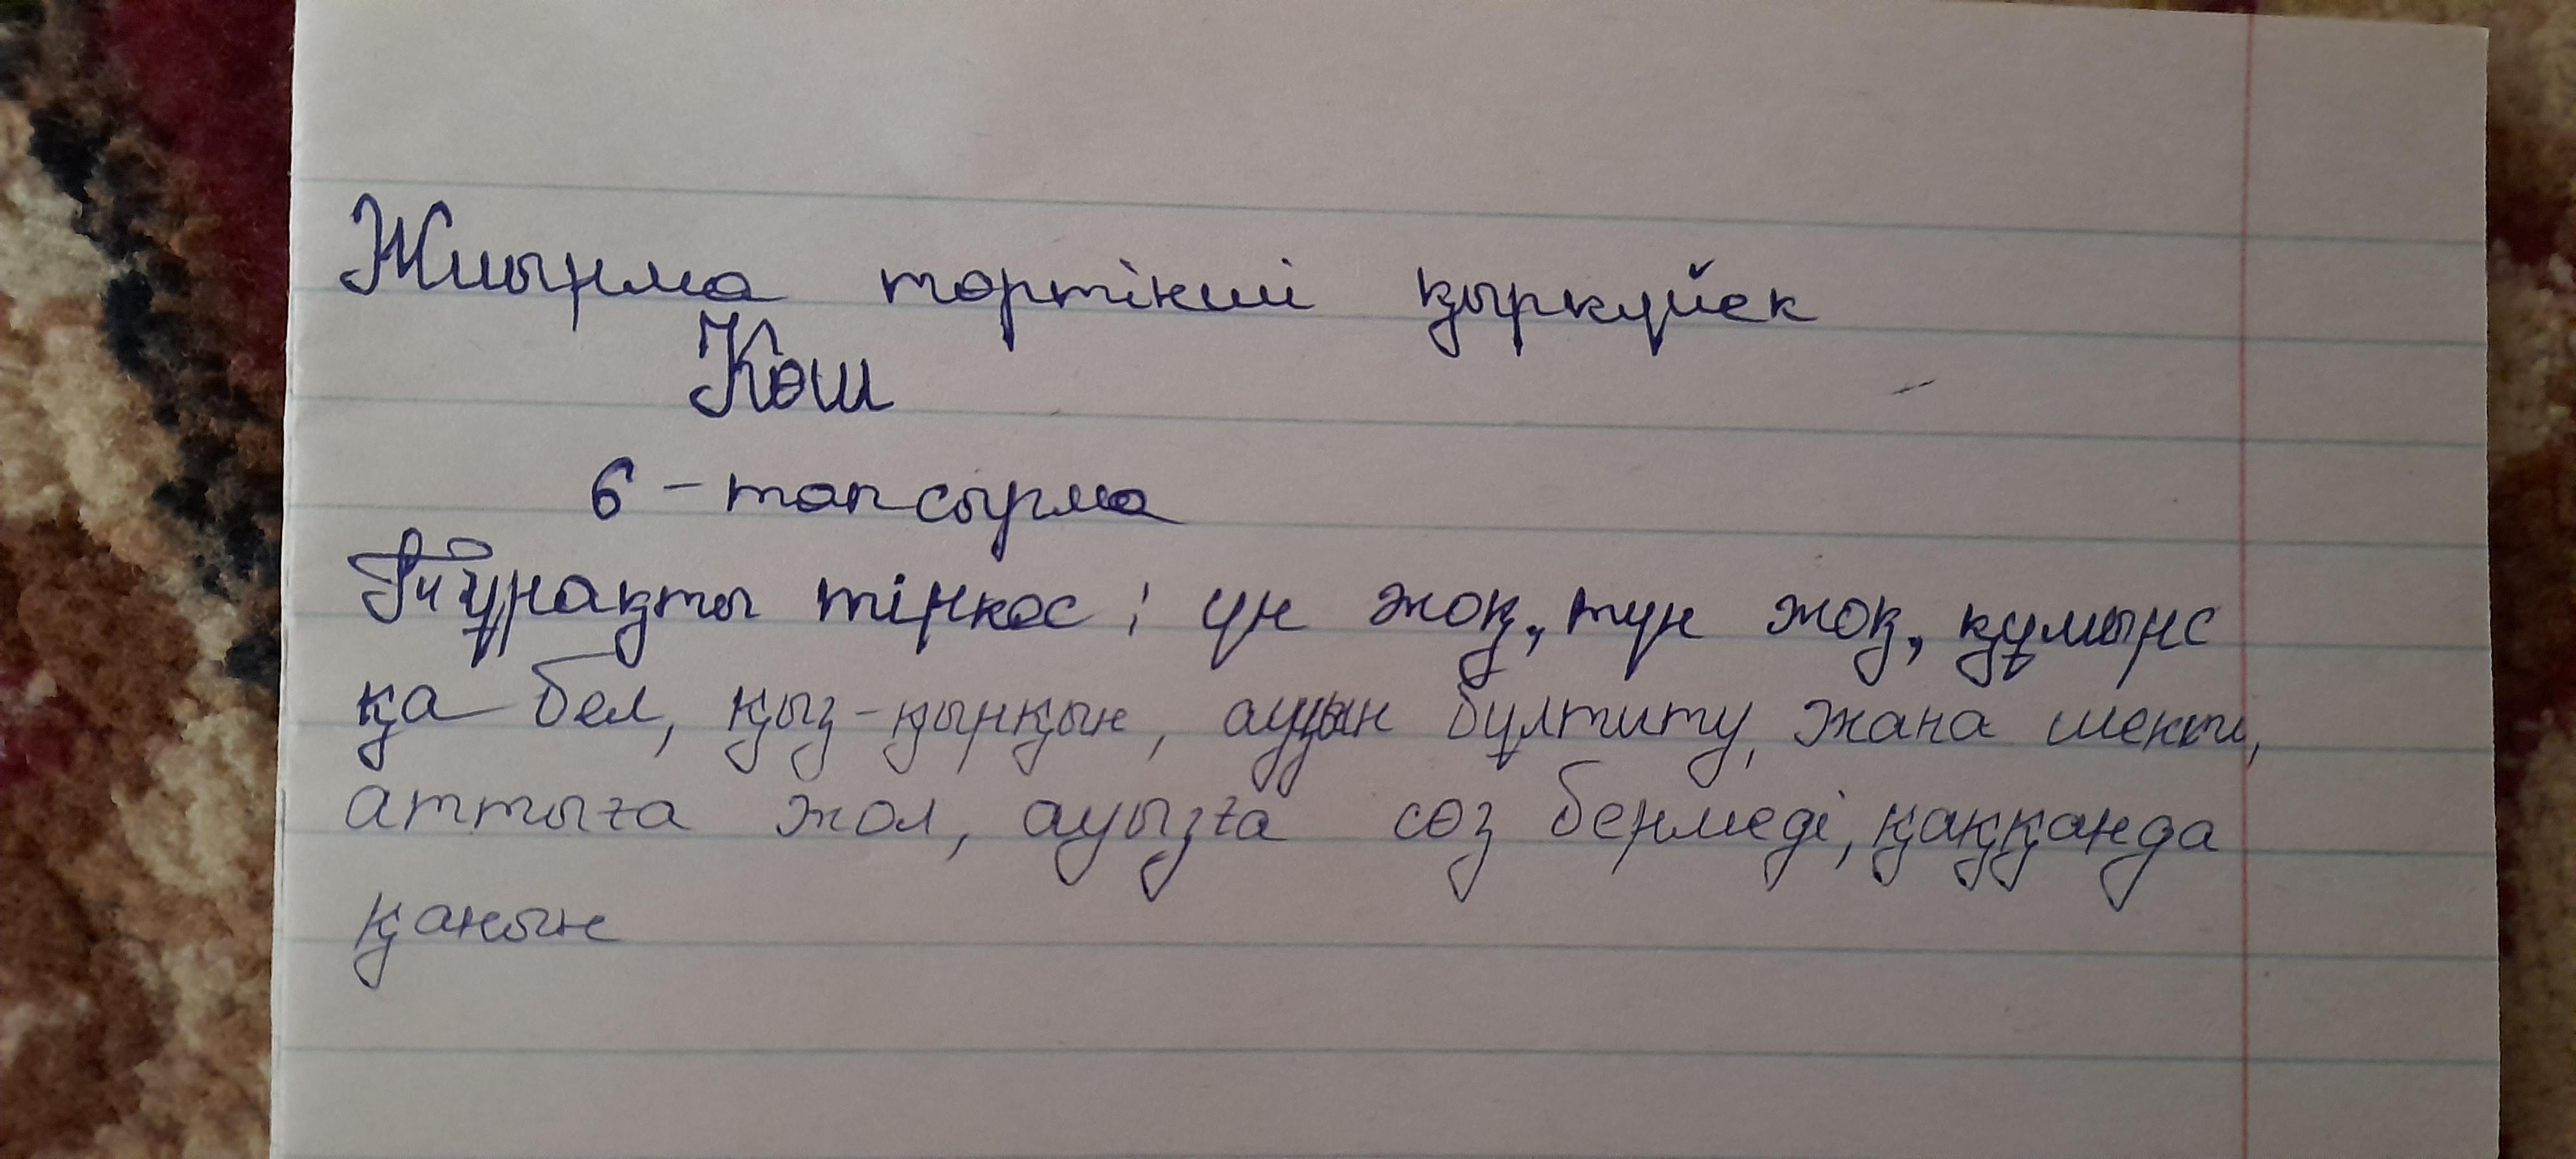 Жиырма төртінші қыркүйек
Көш
6-тапсырма
Тұрақты тіркес: үн жоқ, түн жоқ, құмырс
қа бел, қыз-қырқын, ауын бұлтиту, жана шекті,
аттыға жол, ауызға сөз бермеді, қаққанда
қанын